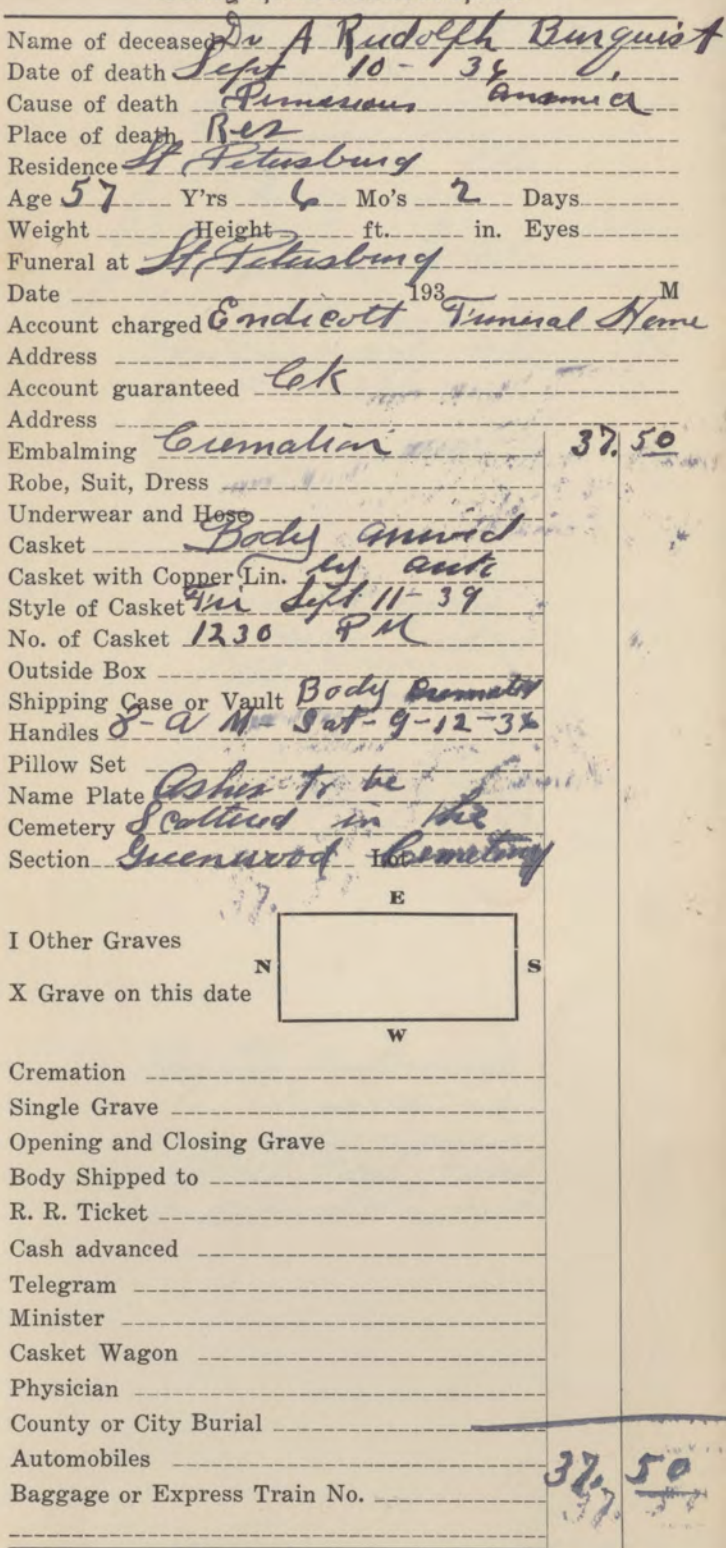 Name of deceased Dr A Rudolph Burquist
Date of death Sept 10 - 36
Cause of death anamia
Place of death Res
Residence St Petersburg
Age 57 Y'rs 6 Mo's 2 Days
Weight Height ft. in. Eyes
Funeral at St Petersburg
Date 193 M
Account charged Endicott Funeral Home
Address
Account guaranteed Ck
Address
Embalming Cremation 37. 50
Robe, Suit, Dress
Underwear and Hose
Casket Body arrived
Casket with Copper Lin. by auto
Style of Casket Fri Sept 11-39
No. of Casket 1230 PM
Outside Box
Shipping Case or Vault Body Cremated
Handles 8-a M- Sat-9-12-36
Pillow Set
Name Plate Ashes to be
Cemetery Scattered in the
Section Greenwood Lot Cemetery
37.
E
I Other Graves
N S
X Grave on this date
W
Cremation
Single Grave
Opening and Closing Grave
Body Shipped to
R. R. Ticket
Cash advanced
Telegram
Minister
Casket Wagon
Physician
County or City Burial
Automobiles 37. 50
Baggage or Express Train No.